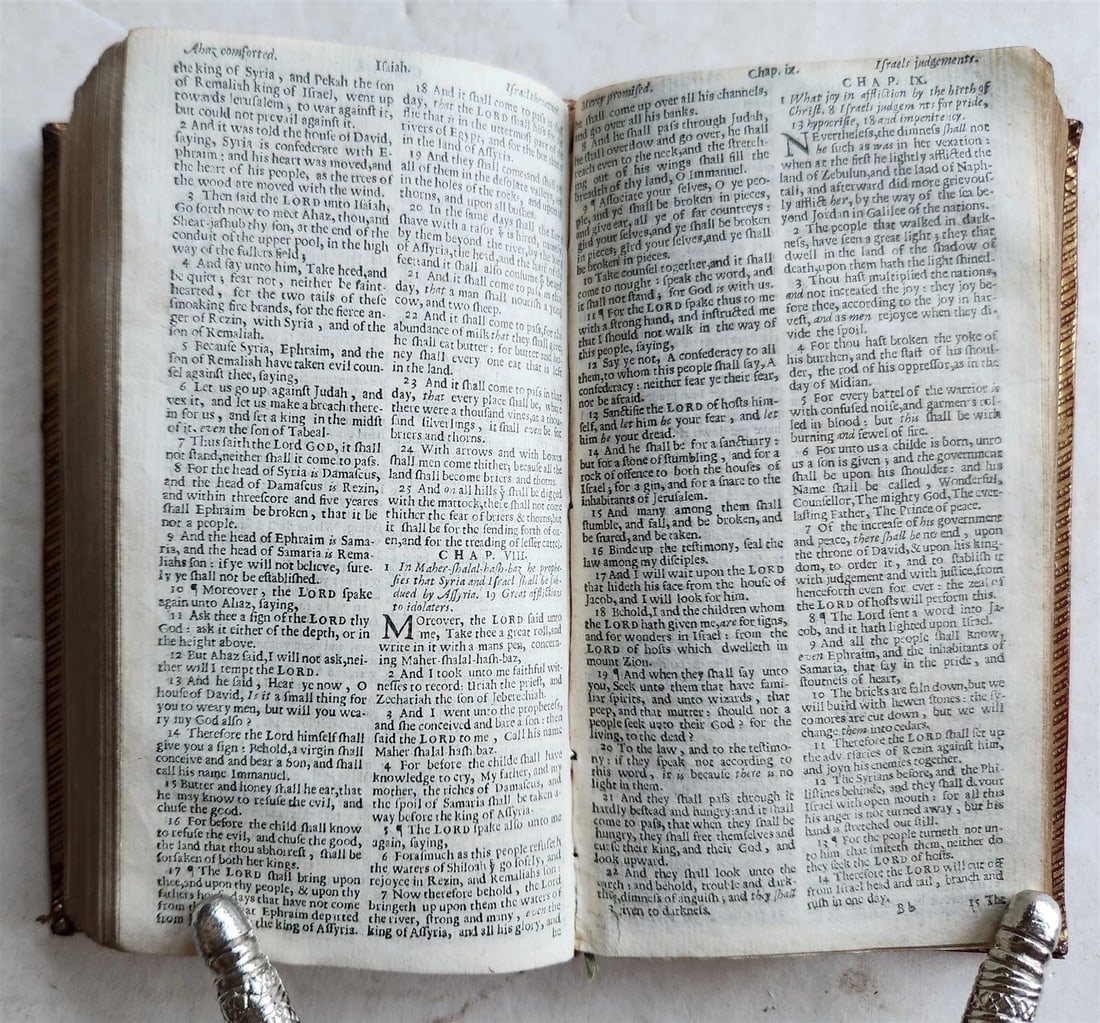 Ahaz comforted.
Isaiah.
the king of Syria, and Pekah the ſon
of Remaliah king of Iſrael, went up
towards Jeruſalem, to war againſt it,
but could not prevail againſt it.
2 And it was told the houſe of David,
ſaying, Syria is confederate with E-
phraim: and his heart was moved, and
the heart of his people, as the trees of
the wood are moved with the wind.
3 Then ſaid the LORD unto Iſaiah,
Go forth now to meet Ahaz, thou, and
Shear-jaſhub thy ſon, at the end of the
conduit of the upper pool, in the high
way of the fullers field;
4 And ſay unto him, Take heed, and
be quiet; fear not, neither be faint-
hearted, for the two tails of theſe
ſmoaking fire brands, for the fierce an-
ger of Rezin, with Syria, and of the
ſon of Remaliah.
5 Becauſe Syria, Ephraim, and the
ſon of Remaliah have taken evil coun-
ſel againſt thee, ſaying,
6 Let us go up againſt Judah, and
vex it, and let us make a breach there-
in for us, and ſet a king in the midſt
of it, even the ſon of Tabeal.
7 Thus ſaith the Lord GOD, it ſhall
not ſtand, neither ſhall it come to paſs.
8 For the head of Syria is Damaſcus,
and the head of Damaſcus is Rezin,
and within threeſcore and five yeares
ſhall Ephraim be broken, that it be
not a people.
9 And the head of Ephraim is Sama-
ria, and the head of Samaria is Rema-
liahs ſon: if ye will not believe, ſure-
ly ye ſhall not be eſtabliſhed.
10 ¶ Moreover, the LORD ſpake
again unto Ahaz, ſaying,
11 Ask thee a ſign of the LORD thy
God: ask it either of the depth, or in
the height above.
12 But Ahaz ſaid, I will not ask, nei-
ther will I tempt the LORD.
13 And he ſaid, Hear ye now, O
houſe of David, Is it a ſmall thing for
you to weary men, but will you wea-
ry my God alſo?
14 Therefore the Lord himſelf ſhall
give you a ſign: Behold, a virgin ſhall
conceive and and bear a Son, and ſhall
call his name Immanuel.
15 Butter and honey ſhall he eat, that
he may know to refuſe the evil, and
chuſe the good.
16 For before the child ſhall know
to refuſe the evil, and chuſe the good,
the land that thou abhorreſt, ſhall be
forſaken of both her kings.
17 ¶ The LORD ſhall bring upon
thee, and upon thy people, & upon thy
fathers days that have not come
from Ephraim departed
from the king of Aſſyria.
18 And it ſhall come to paſs in
day, that the LORD ſhall
flie that is in the uttermoſt part of
rivers of Egypt, and for the bee
in the land of Aſſyria.
19 And they ſhall come, and ſhall
all of them in the deſolate valleys,
in the holes of the rocks, and upon
thorns, and upon all buſhes.
20 In the ſame days ſhall the
ſhave with a raſor hired,
by them beyond the river, by the
of Aſſyria, the head, and the hair of
feet: and it ſhall alſo conſume
21 And it ſhall come to paſs in
day, that a man ſhall nouriſh a
cow, and two ſheep.
22 And it ſhall come to paſs, for
abundance of milk that they ſhall
he ſhall eat butter: for butter and ho-
ney ſhall every one eat that is left
in the land.
23 And it ſhall come to paſs in that
day, that every place ſhall be, where
there were a thouſand vines, at a
ſand ſilverlings, it ſhall even be for
briers and thorns.
24 With arrows and with bows
ſhall men come thither, becauſe all the
land ſhall become briers and thorns.
25 And on all hills ſhall be digged
with the mattock, there ſhall not come
thither the fear of briers & thorns, but
it ſhall be for the ſending forth of ox-
en, and for the treading of leſſer cattel.
CHAP. VIII.
1 In Maher-ſhalal-haſh-baz, he prophe-
ſies that Syria and Iſrael ſhall be ſub-
dued by Aſſyria. 19 Great afflictions
to idolaters.
Moreover, the LORD ſaid unto
me, Take thee a great roll, and
write in it with a mans pen, concern-
ing Maher-ſhalal-haſh-baz,
2 And I took unto me faithful wit-
neſſes to record: Uriah the prieſt, and
Zechariah the ſon of Jeberechiah.
3 And I went unto the propheteſs,
and ſhe conceived and bare a ſon: then
ſaid the LORD to me, Call his name
Maher ſhalal-haſh baz.
4 For before the childe ſhall have
knowledge to cry, My father, and my
mother, the riches of Damaſcus, and
the ſpoil of Samaria ſhall be taken a-
way before the king of Aſſyria.
5 ¶ The LORD ſpake alſo unto me
again, ſaying,
6 Foraſmuch as this people refuſeth
the waters of Shiloah go ſoftly, and
rejoyce in Rezin, and Remaliahs ſon:
7 Now therefore behold, the Lord
bringeth up upon them the waters of
the river, ſtrong and many, even the
king of Aſſyria, and all his glory, and
he
Mercy promiſed.
Chap. ix.
Iſraels judgements.
ſhall come up over all his channels,
and go over all his banks.
8 And he ſhall paſs through Judah,
he ſhall overflow and go over, he ſhall
reach even to the neck, and the ſtretch-
ing out of his wings ſhall fill the
breadth of thy land, O Immanuel.
9 ¶ Aſſociate your ſelves, O ye peo-
ple, and ye ſhall be broken in pieces,
and give ear, all ye of far countreys:
gird your ſelves, and ye ſhall be broken
in pieces; gird your ſelves, and ye ſhall
be broken in pieces.
10 Take counſel together, and it ſhall
come to nought: ſpeak the word, and
it ſhall not ſtand; for God is with us.
11 ¶ For the LORD ſpake thus to me
with a ſtrong hand, and inſtructed me
that I ſhould not walk in the way of
this people, ſaying,
12 Say ye not, A confederacy to all
them, to whom this people ſhall ſay, A
confederacy: neither fear ye their fear,
nor be afraid.
13 Sanctifie the LORD of hoſts him-
ſelf, and let him be your fear, and let
him be your dread.
14 And he ſhall be for a ſanctuary:
but for a ſtone of ſtumbling, and for a
rock of offence to both the houſes of
Iſrael, for a gin, and for a ſnare to the
inhabitants of Jeruſalem.
15 And many among them ſhall
ſtumble, and fall, and be broken, and
be ſnared, and be taken.
16 Binde up the teſtimony, ſeal the
law among my diſciples.
17 And I will wait upon the LORD
that hideth his face from the houſe of
Jacob, and I will look for him.
18 Behold, I and the children whom
the LORD hath given me, are for ſigns,
and for wonders in Iſrael: from the
LORD of hoſts which dwelleth in
mount Zion.
19 ¶ And when they ſhall ſay unto
you, Seek unto them that have fami-
liar ſpirits, and unto wizards, that
peep, and that mutter: ſhould not a
people ſeek unto their God? for the
living, to the dead?
20 To the law, and to the teſtimo-
ny: if they ſpeak not according to
this word, it is becauſe there is no
light in them.
21 And they ſhall paſs through it
hardly beſtead and hungry: and it ſhall
come to paſs, that when they ſhall be
hungry, they ſhall fret themſelves and
curſe their king, and their God, and
look upward.
22 And they ſhall look unto the
earth: and behold, trouble and dark-
dimneſs of anguiſh; and they ſhall
driven to darkneſs.
CHAP. IX.
1 What joy in affliction by the birth of
Chriſt. 8 Iſraels judgem nts for pride,
13 hypocriſie, 18 and impenitency.
NEvertheleſs, the dimneſs ſhall not
be ſuch as was in her vexation:
when at the firſt he lightly afflicted the
land of Zebulun, and the land of Naph-
tali, and afterward did more grievouſ-
ly afflict her, by the way of the ſea be-
yond Jordan in Galilee of the nations.
2 The people that walked in dark-
neſs, have ſeen a great light; they that
dwell in the land of the ſhadow of
death, upon them hath the light ſhined.
3 Thou haſt multiplied the nations,
and not increaſed the joy: they joy be-
fore thee, according to the joy in har-
veſt, and as men rejoyce when they di-
vide the ſpoil.
4 For thou haſt broken the yoke of
his burthen, and the ſtaff of his ſhoul-
der, the rod of his oppreſſor, as in the
day of Midian.
5 For every battel of the warrior is
with confuſed noiſe, and garments rol-
led in blood: but this ſhall be with
burning and fewel of fire.
6 For unto us a childe is born, unto
us a ſon is given, and the government
ſhall be upon his ſhoulder: and his
Name ſhall be called, Wonderful,
Counſellor, The mighty God, The ever-
laſting Father, The Prince of peace.
7 Of the increaſe of his government
and peace, there ſhall be no end, upon
the throne of David, & upon his king-
dom, to order it, and to ſtabliſh it
with judgement and with juſtice, from
henceforth even for ever: the zeal of
the LORD of hoſts will perform this.
8 ¶ The Lord ſent a word into Ja-
cob, and it hath lighted upon Iſrael.
9 And all the people ſhall know,
even Ephraim, and the inhabitants of
Samaria, that ſay in the pride, and
ſtoutneſs of heart,
10 The bricks are faln down, but we
will build with hewen ſtones: the ſy-
comores are cut down, but we will
change them into cedars.
11 Therefore the LORD ſhall ſet up
the adverſaries of Rezin againſt him,
and joyn his enemies together.
12 The Syrians before, and the Phi-
liſtines behinde, and they ſhall devour
Iſrael with open mouth: for all this
his anger is not turned away, but his
hand is ſtretched out ſtill.
13 ¶ For the people turneth not un-
to him that ſmiteth them, neither do
they ſeek the LORD of hoſts.
14 Therefore the LORD will cut off
from Iſrael head and tail, branch and
ruſh in one day.
Bb
15 The